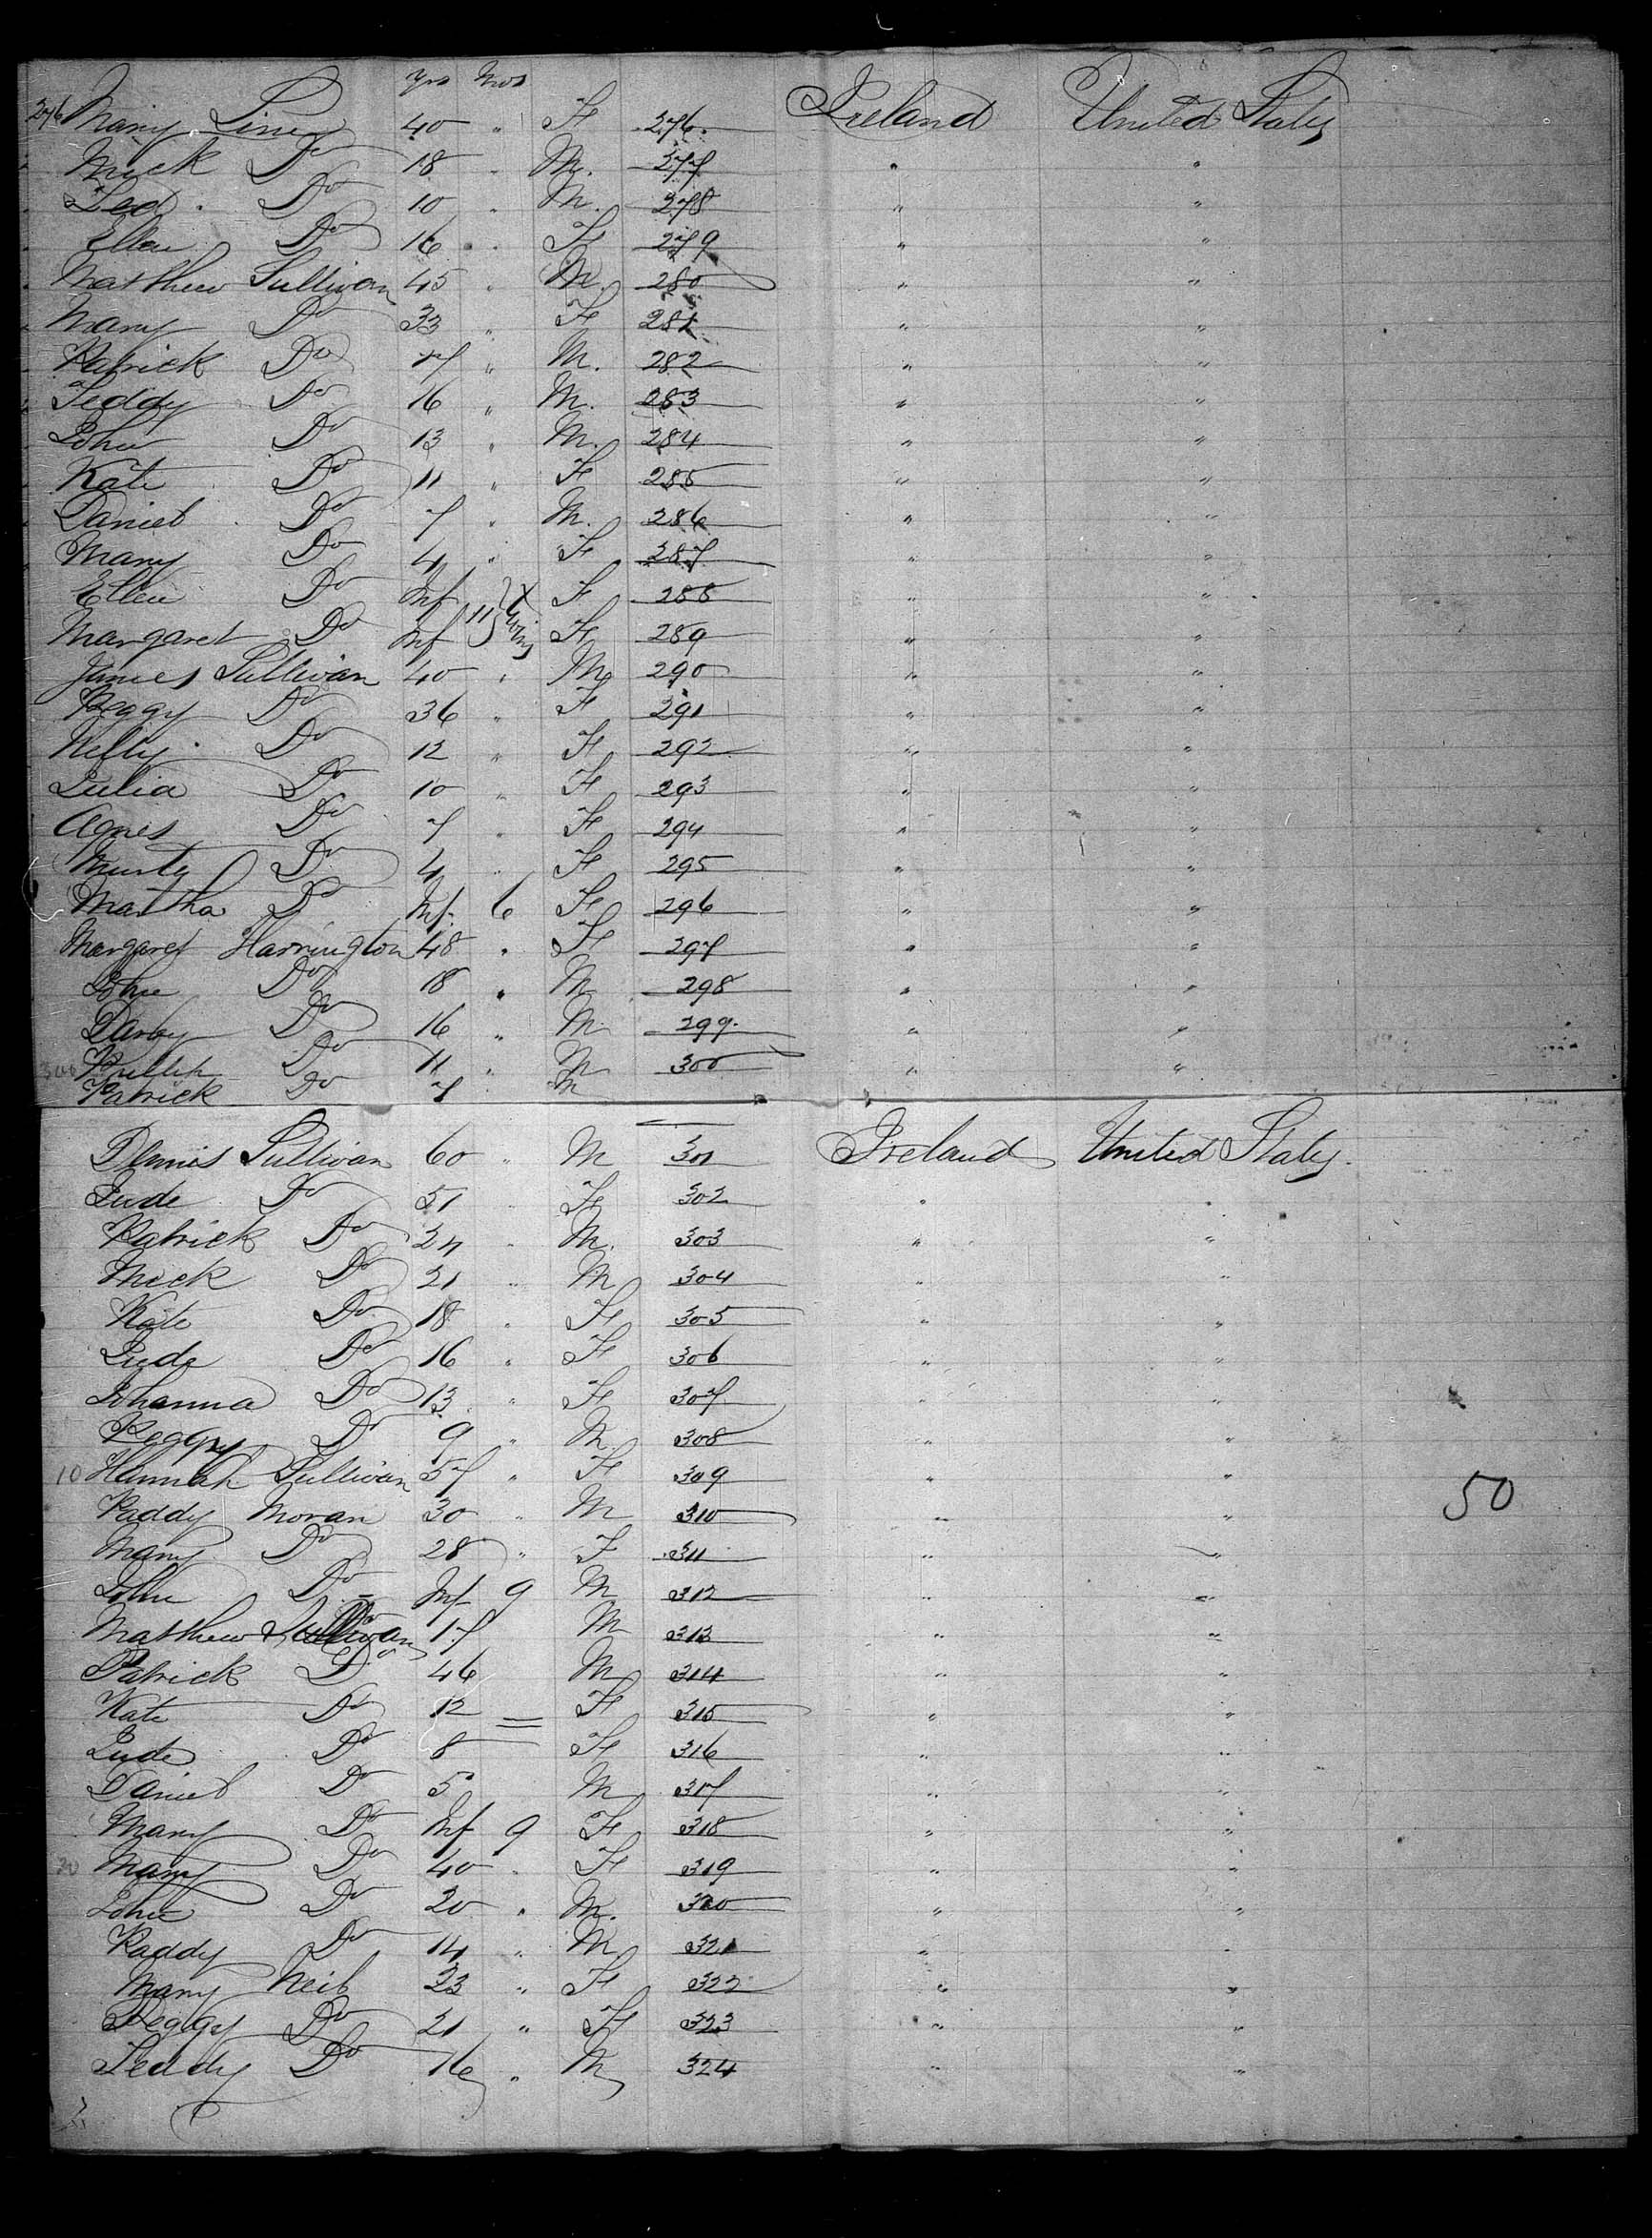 Yrs Mos
276 Mary Liney 40 " F 276 Ireland United States
Mick Do 18 " M. 277 " "
Ted. Do 10 " M. 278 " "
Ellen Do 16 " F 279 " "
Matthew Sullivan 45 " M. 280 " "
Mary Do 33 " F 281 " "
Patrick Do 7 " M. 282 " "
Teddy Do 16 " M. 283 " "
John Do 13 " M. 284 " "
Kate Do 11 " F 285 " "
Daniel Do 7 " M. 286 " "
Mary Do 4 " F 287 " "
Ellen Do Inf F 288 " "
11 Twins
Margaret Do Inf F 289 " "
James Sullivan 40 " M 290 " "
Peggy Do 36 " F 291 " "
Do 12 " F 292 " "
Julia Do 10 " F 293 " "
Agnes Do 7 " F 294 " "
Murty Do 4 " F 295 " "
Martha Do Inf. 6 F 296 " "
Margaret Harrington 48 " F 297 " "
John Do 18 " M 298 " "
Darby Do 16 " M 299 " "
300 Do 11 " M 300 " "
Patrick Do 7 " M
Dennis Sullivan 60 " M 301 Ireland United States.
Jude Do 51 " F 302 " "
Patrick Do 24 " M. 303 " "
Mick Do 21 " M 304 " "
Kate Do 18 " F 305 " "
Jude Do 16 " F 306 " "
Johanna Do 13 " F 307 " "
Peggy Do 9 " M. 308 " "
10 Hannah Sullivan 57 " F 309 " "
50
Paddy Moran 30 " M 310 " "
Mary Do 28 " F 311 " "
John Do Inf 9 M 312 " "
Matthew Sullivan Do 17 M 313 " "
Patrick Do 46 M 314 " "
Kate Do 12 F 315 " "
Jude Do 8 F 316 " "
Daniel Do 5 M 317 " "
Mary Do Inf 9 F 318 " "
20 Mary Do 40 " F 319 " "
John Do 20 " M. 320 " "
Paddy Do 14 " M 321 " "
Mary Neil 23 " F 322 " "
Peggy Do 21 " F 323 " "
Teddy Do 16 " M 324 " "